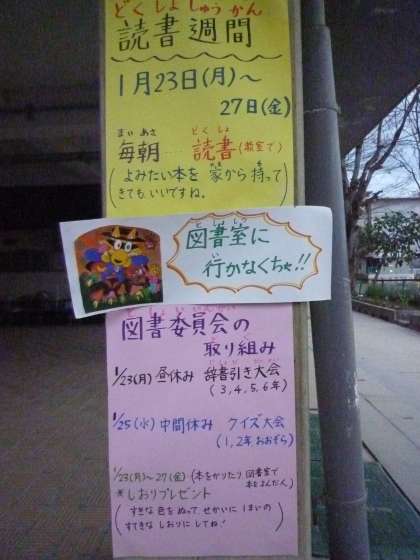 どくしょしゅうかん
読書週間
1月23日(月)~
27日(金)
まいあさ どくしょ
毎朝……読書(教室で)
(よみたい本を家から持って
きてもいいですね。)
としょしつ
図書室に
行かなくちゃ!!
図書委員会の
取り組み
1/23(月) 昼休み 辞書引き大会
(3,4,5,6年)
1/25(水) 中間休み クイズ大会
(1,2年おおぞら)
1/23(月)~27(金)(本をかりたり 図書室で
本をよんだ人)
*しおりプレゼント
(すきな色をぬって、せかいに1まいの
すてきなしおりにしてね!)